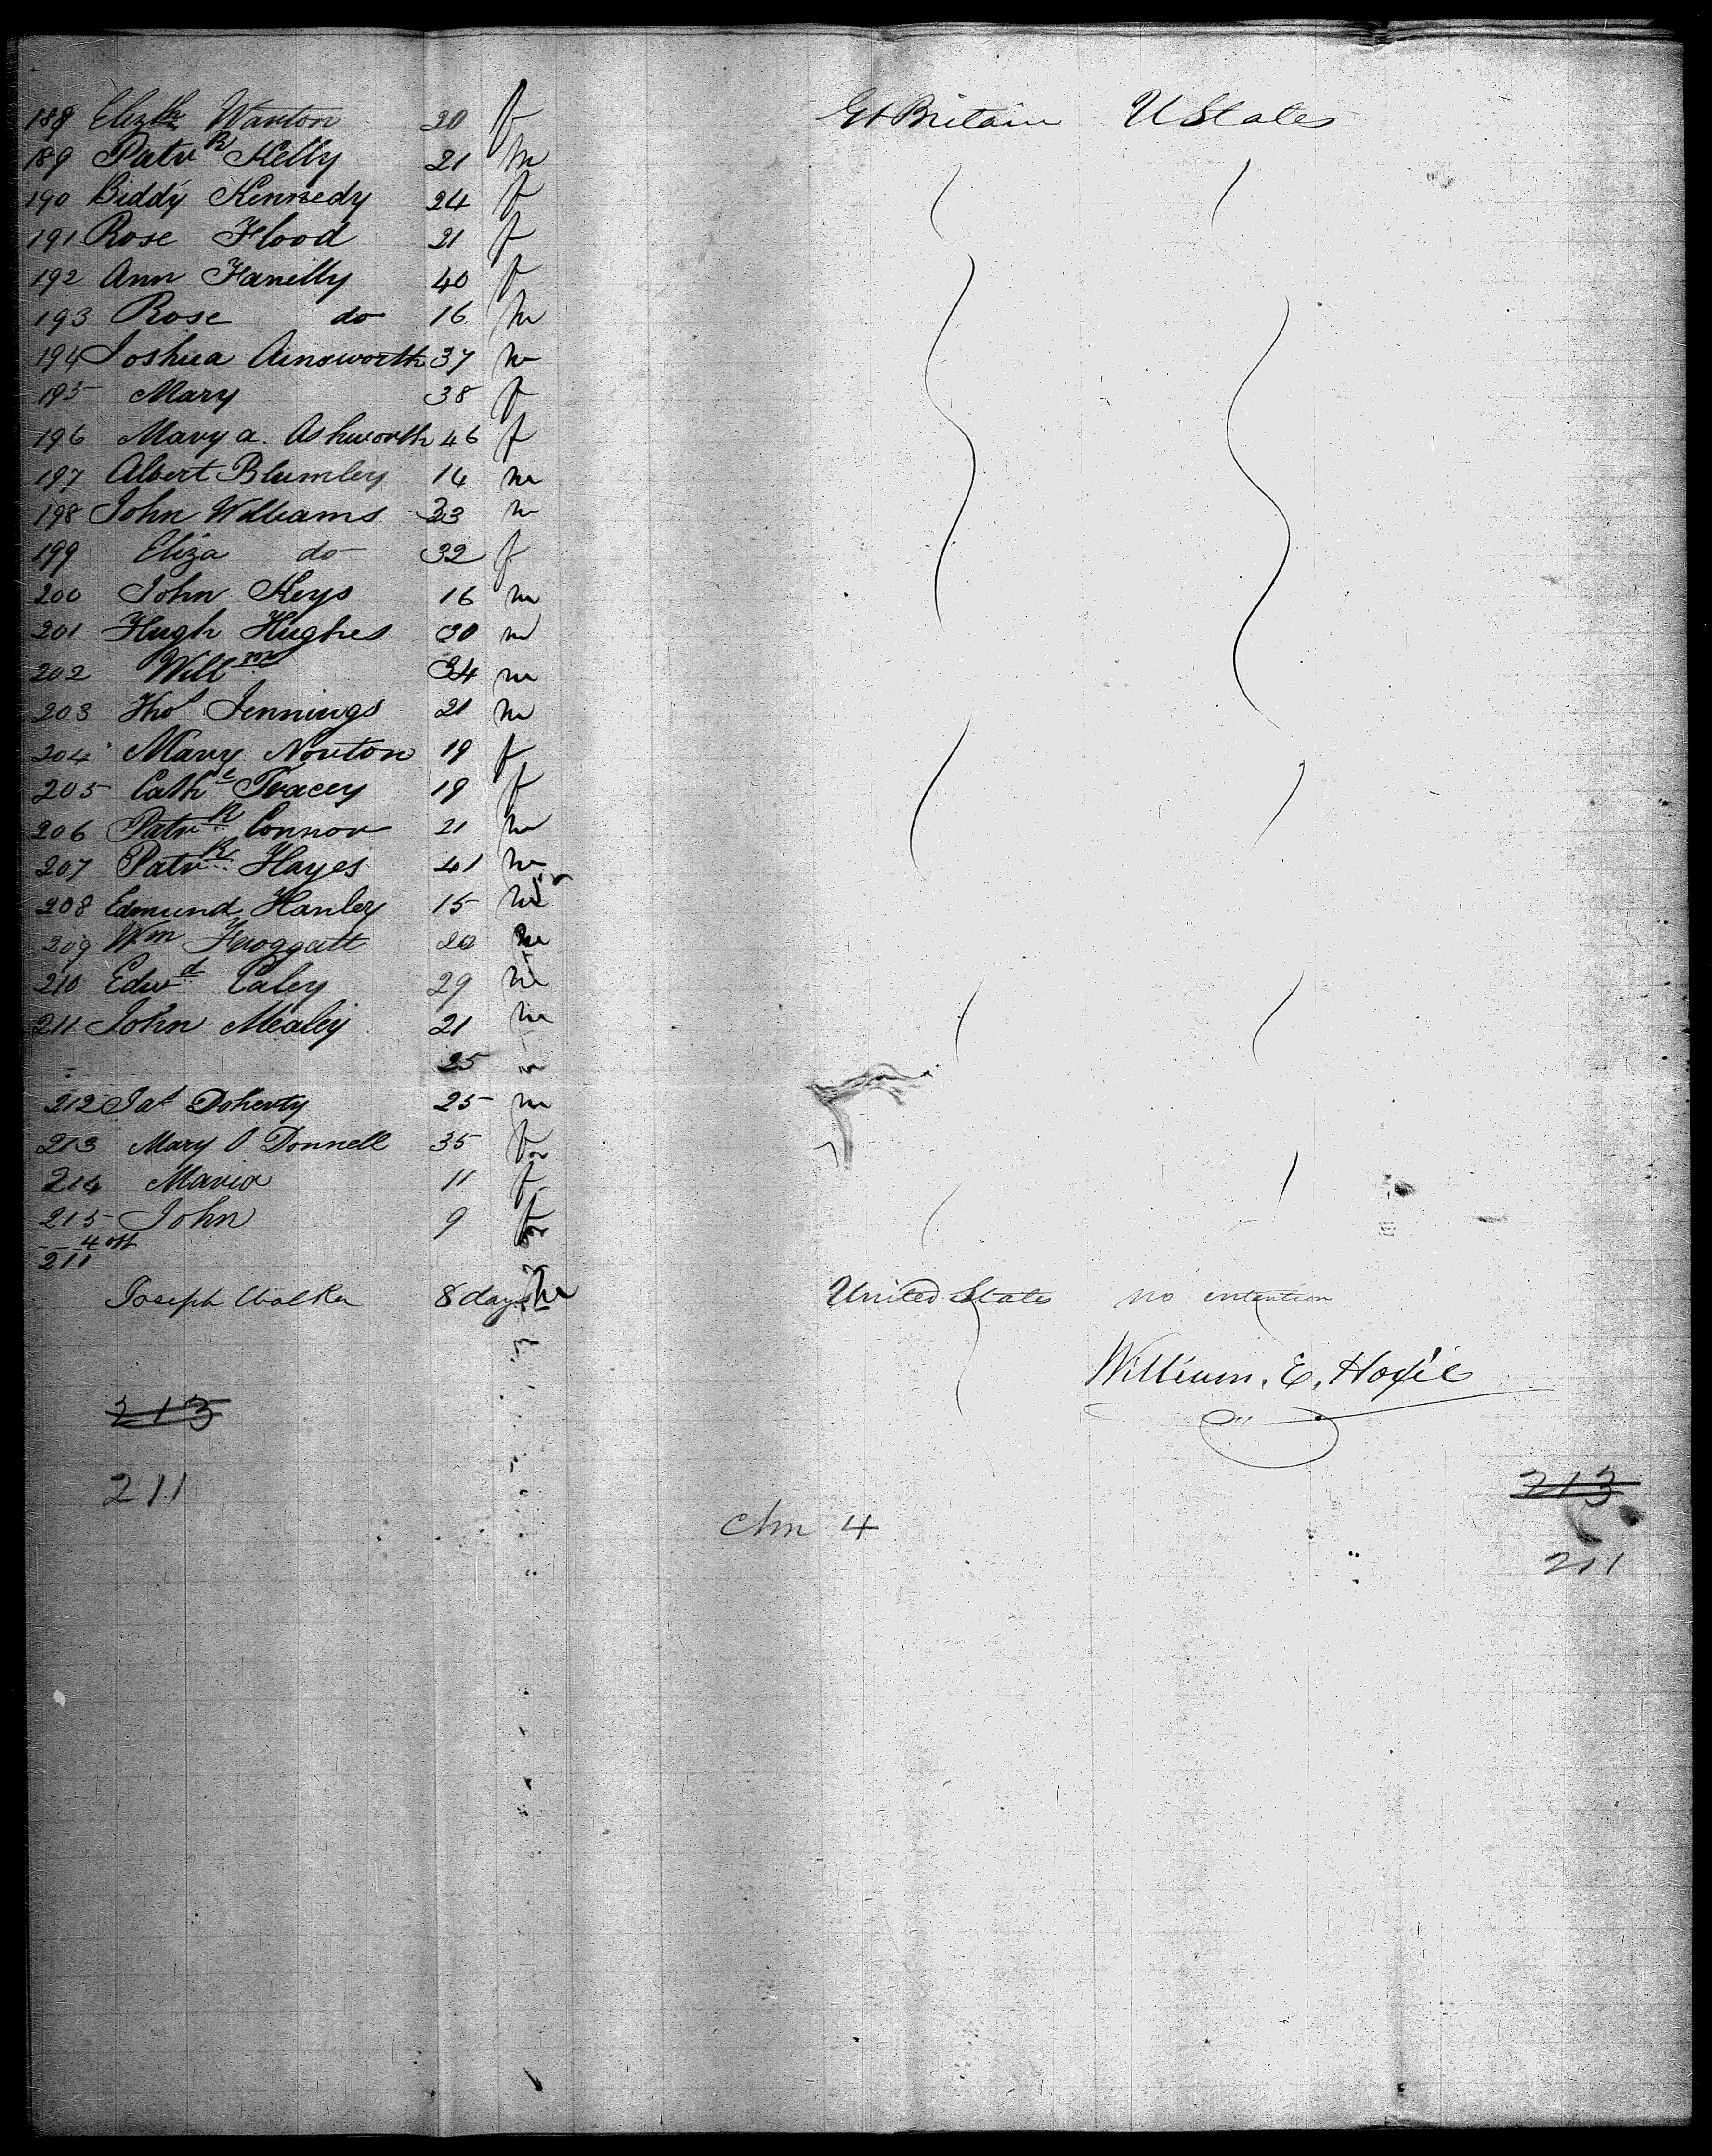 188 Elizth Wanton 20 f Gt Britain U States
189 Patrk Kelly 21 m
190 Biddy Kennedy 24 f
191 Rose Flood 21 f
192 Ann Fanilly 40 f
193 Rose do 16 m
194 Joshua Ainsworth 37 m
195 Mary 38 f
196 Mary a. Ashworth 46 f
197 Albert Blumley 14 m
198 John Williams 33 m
199 Eliza do 32 f
200 John Keys 16 m
201 Hugh Hughes 30 m
202 Willm 34 m
203 Thos Jennings 21 m
204 Mary Norton 19 f
205 Cathe Tracey 19 f
206 Patrk Connor 21 m
207 Patrk Hayes 41 m
208 Edmund Hanley 15 m
209 Wm Froggatt 20 m
210 Edwd Caley 29 m
211 John Mealey 21 m
25 m
212 Jas Doherty 25 m
213 Mary O Donnell 35 f
214 Maria 11 f
215 John 9
4 off
211
Joseph Walker 8 days m United States no intention
William. E. Hoxie
213
211
213
Chn 4
211